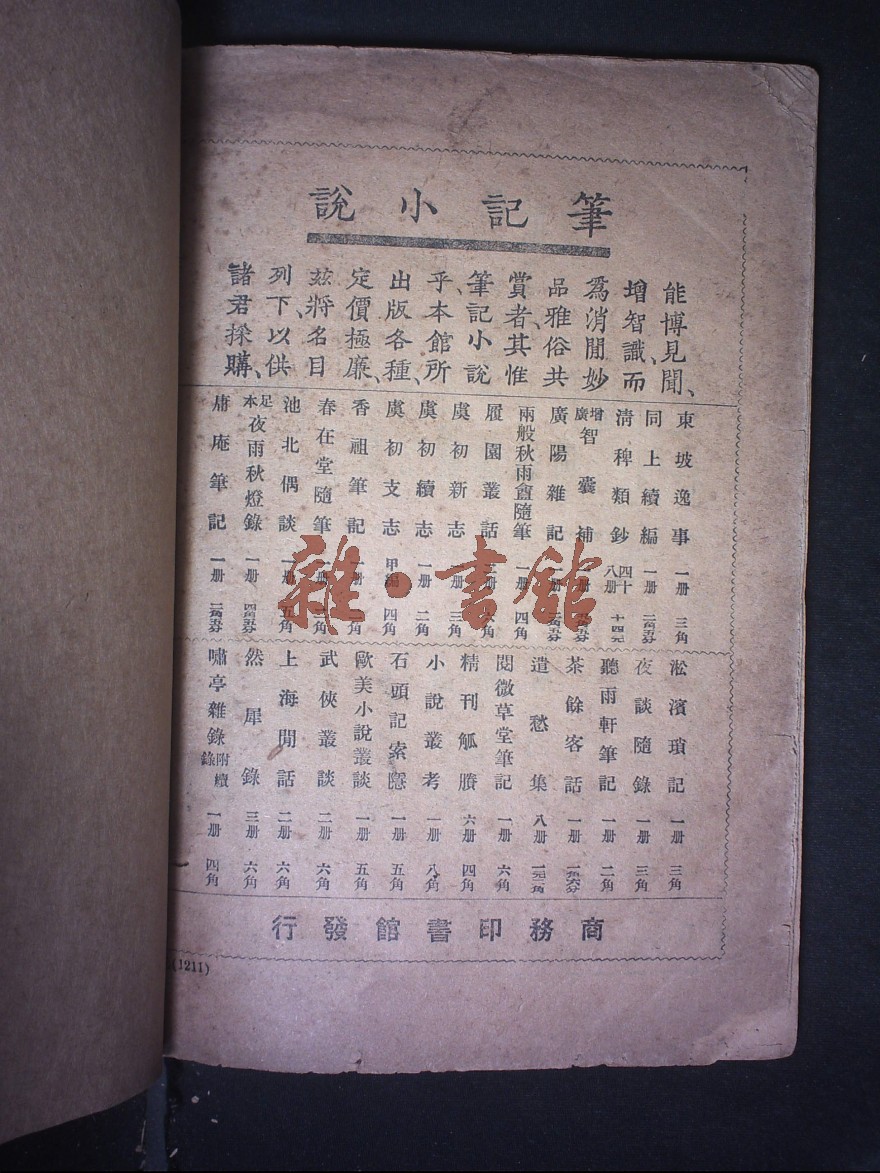 筆記小說
能博見聞、
增智識、而
爲消閒妙
品雅俗共
賞者、其惟
筆記小說
乎、本館所
出版各種、
定價極廉、
玆將名目
列下、以供
諸君採購、
東坡逸事 一册 三角
同上續編 一册
淸稗類鈔 四十八册 十四元
增廣智囊補 一册
廣陽雜記 一册
兩般秋雨盦隨筆 一册 四角
履園叢話 六角
虞初新志 一册 三角
虞初續志 一册 二角
虞初支志 甲編 四角
香祖筆記 一册
春在堂隨筆
池北偶談 五角
足本夜雨秋燈錄 一册
庸庵筆記 一册
淞濱瑣記 一册 三角
夜談隨錄 一册 三角
聽雨軒筆記 一册 二角
茶餘客話 一册
遣愁集 八册
閱微草堂筆記 一册 六角
精刊觚賸 六册 四角
小說叢考 一册 八角
石頭記索隱 一册 五角
歐美小說叢談 一册 五角
武俠叢談 二册 六角
上海閒話 二册 六角
然犀錄 三册 六角
嘯亭雜錄附續錄 一册 四角
商務印書館發行
(1211)
雜·書館